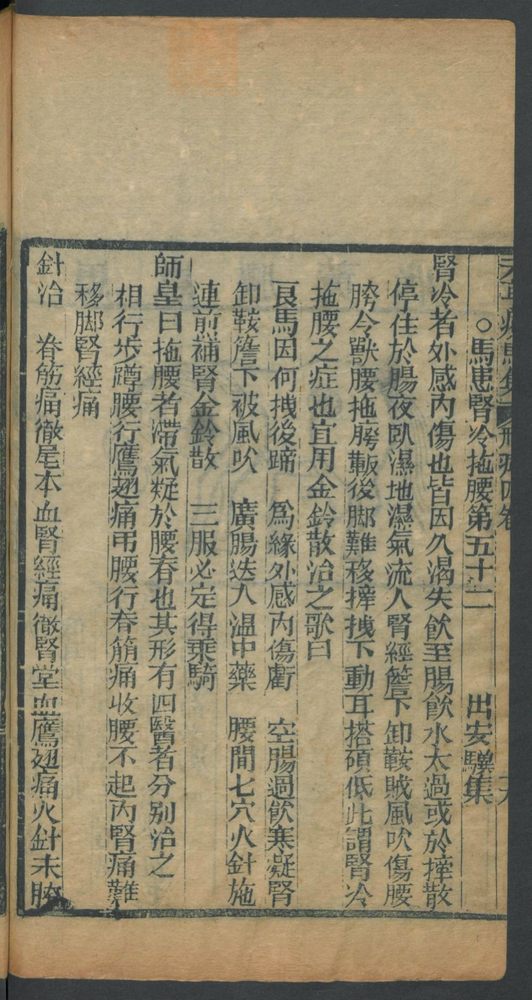 ○馬患腎冷拖腰第五十二 出安驥集
腎冷者外感內傷也皆因久渴失飲至腸飲水太過或於擇散
停住於腸夜臥濕地濕氣流入腎經簷下卸鞍賊風吹傷腰
胯令獸腰拖胯靸後脚難移擇拽下動耳搭頭低此謂腎冷
拖腰之症也宜用金鈴散治之歌曰
良馬因何拽後蹄 爲緣外感內傷虧 空腸過飲寒凝腎
卸鞍簷下被風吹 廣腸迭入溫中藥 腰間七穴火針施
連煎補腎金鈴散 三服必定得乘騎
師皇曰拖腰者滯氣㽹於腰脊也其形有四醫者分別治之
相行步蹲腰行鴈翅痛弔腰行脊筋痛收腰不起內腎痛難
移脚腎經痛
針治 脊筋痛徹尾本血腎經痛徹腎堂血鴈翅痛火針